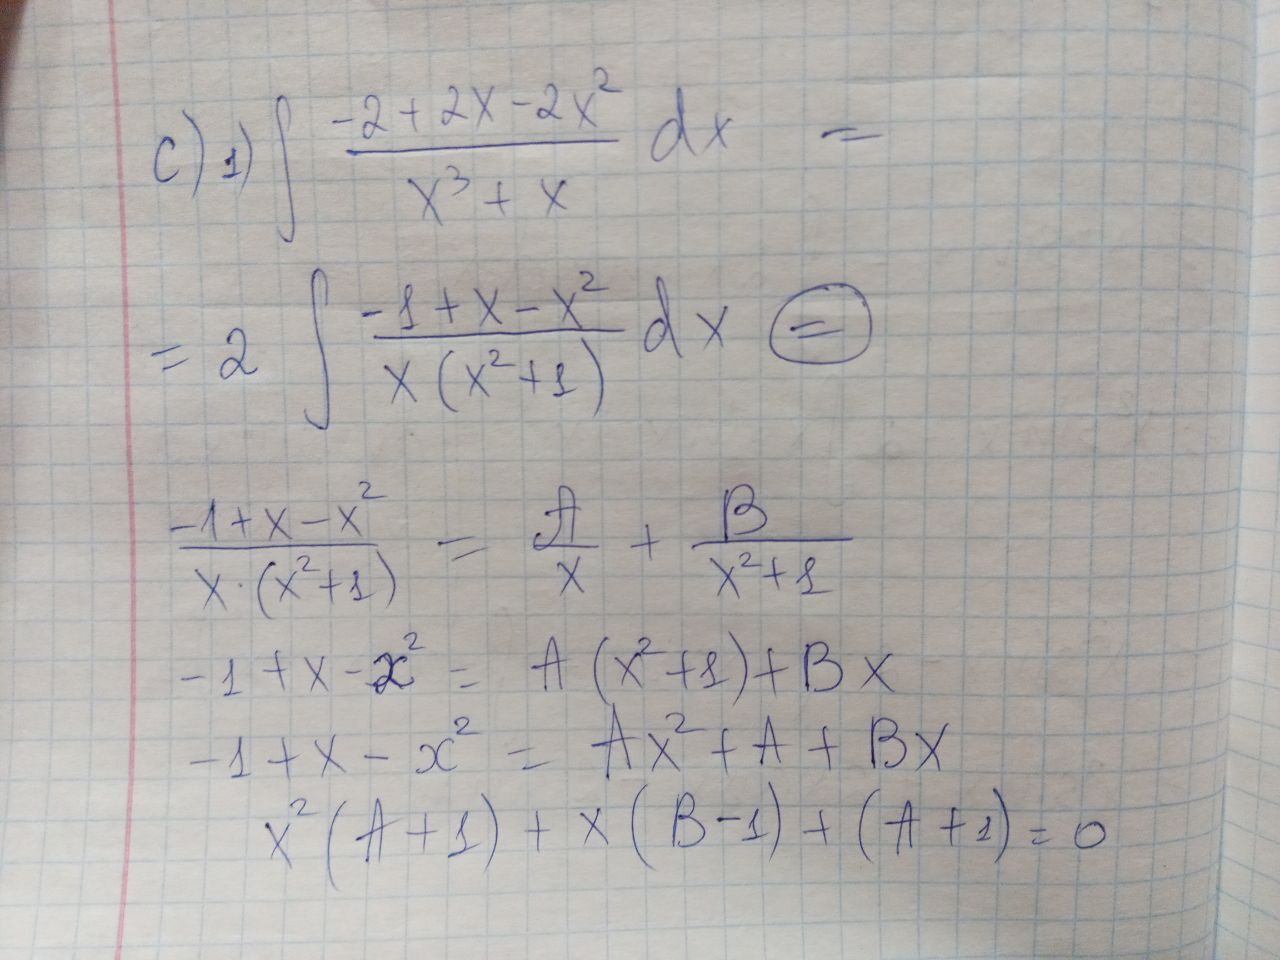 c) 1) ∫ (-2 + 2x - 2x²)/(x³ + x) dx =
= 2 ∫ (-1 + x - x²)/(x(x²+1)) dx =
(-1 + x - x²)/(x·(x²+1)) = A/x + B/(x²+1)
-1 + x - x² = A(x²+1) + Bx
-1 + x - x² = Ax² + A + Bx
x²(A+1) + x(B-1) + (A+1) = 0